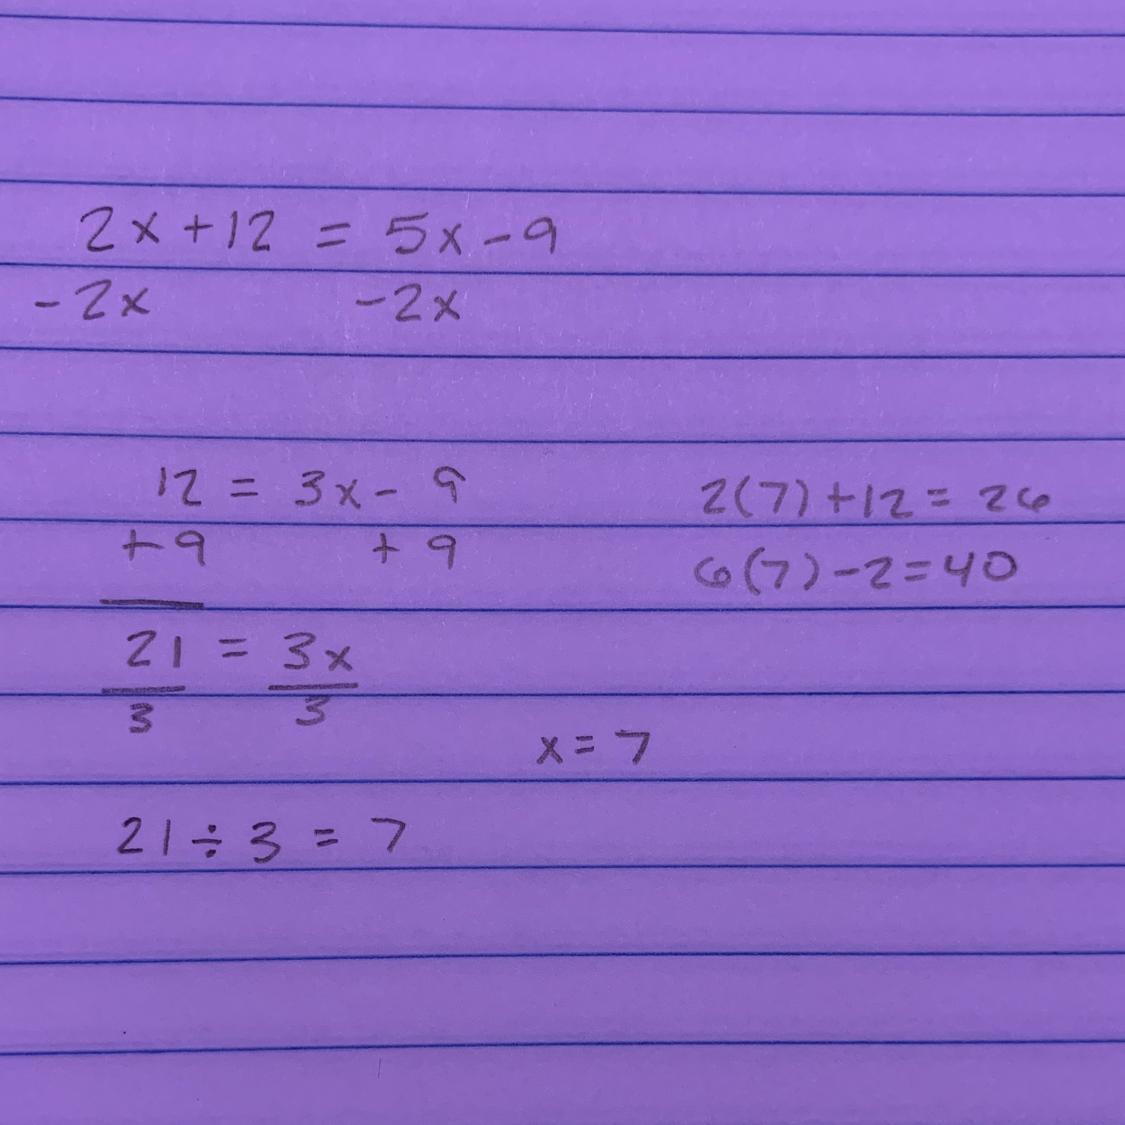 2x + 12 = 5x - 9
- 2x - 2x
12 = 3x - 9
+ 9 + 9
21 = 3x
3 3
21 ÷ 3 = 7
2(7) + 12 = 26
6(7) - 2 = 40
x = 7